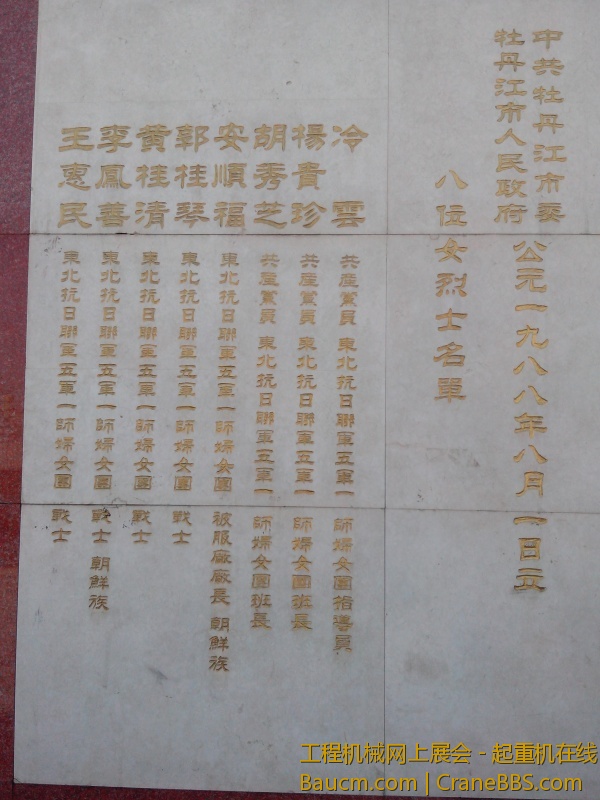 中共牡丹江市委
牡丹江市人民政府
公元一九八八年八月一日立
八位女烈士名單
冷雲 共産黨員 東北抗日聯軍五軍一師婦女團指導員
楊貴珍 共産黨員 東北抗日聯軍五軍一師婦女團班長
胡秀芝 共産黨員 東北抗日聯軍五軍一師婦女團班長
安順福 東北抗日聯軍五軍一師婦女團 被服廠廠長 朝鮮族
郭桂琴 東北抗日聯軍五軍一師婦女團 戰士
黄桂清 東北抗日聯軍五軍一師婦女團 戰士
李鳳善 東北抗日聯軍五軍一師婦女團 戰士 朝鮮族
王惠民 東北抗日聯軍五軍一師婦女團 戰士
工程机械网上展会 - 起重机在线
Baucm.com | CraneBBS.com